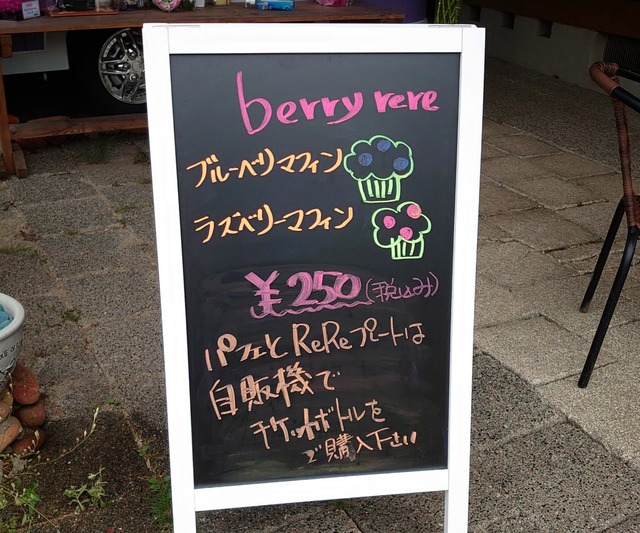 berry rere
ブルーベリーマフィン
ラズベリーマフィン
¥250(税込み)
パフェとReReプレートは
自販機で
チケットボトルを
ご購入下さい